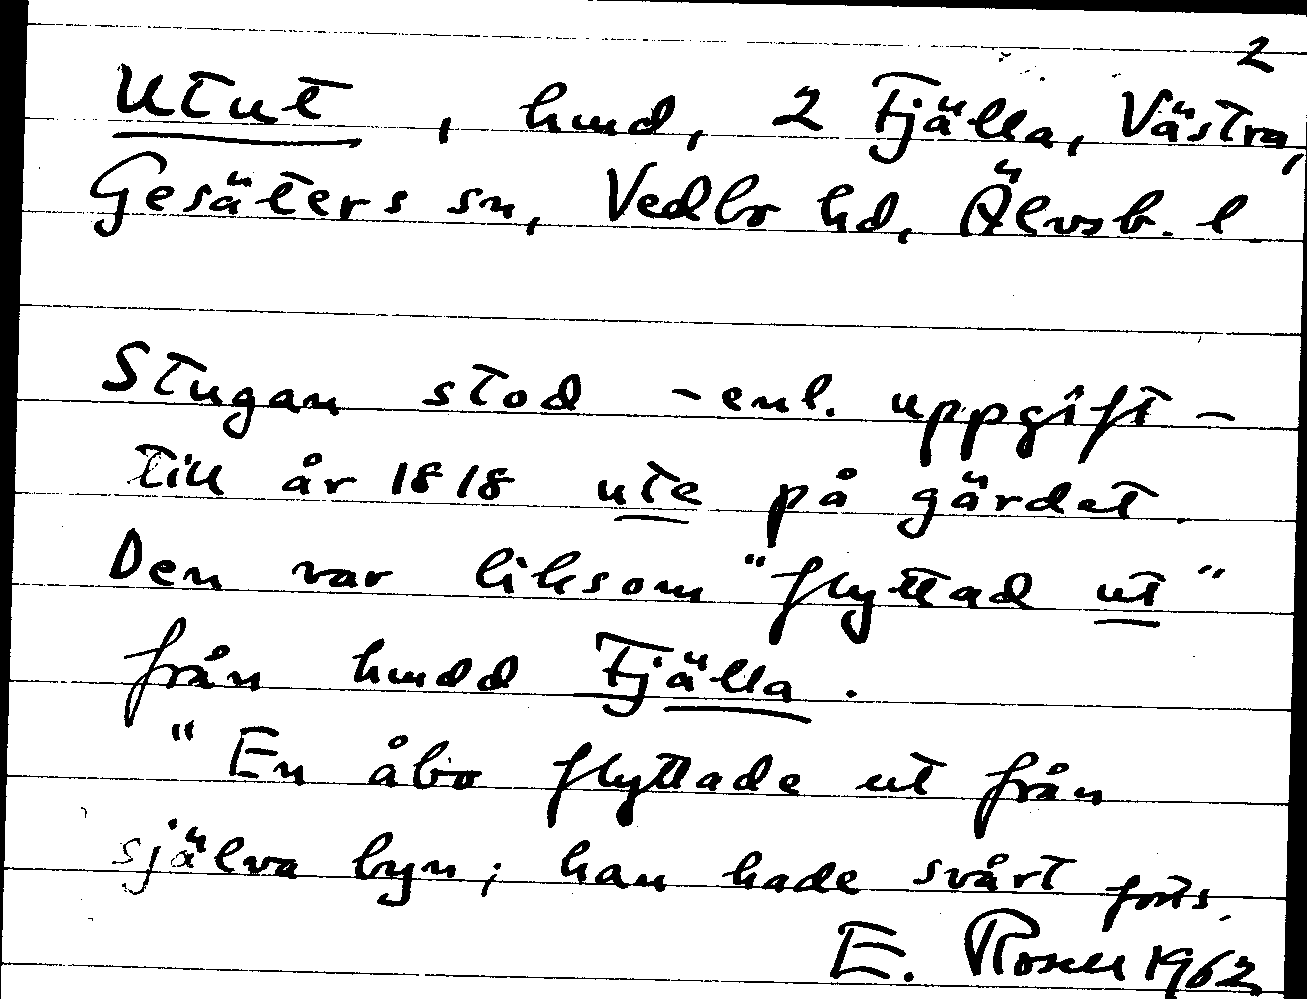 2
Utut, hmd, 2 Fjälla, Västra,
Gesäters sn, Vedbo hd, Älvsb. l.
Stugan stod - enl. uppgift -
till år 1818 ute på gärdet.
Den var liksom "flyttad ut"
från hmdd Fjälla.
"En åbo flyttade ut från
själva byn; han hade svårt forts.
E. Rosell 1962